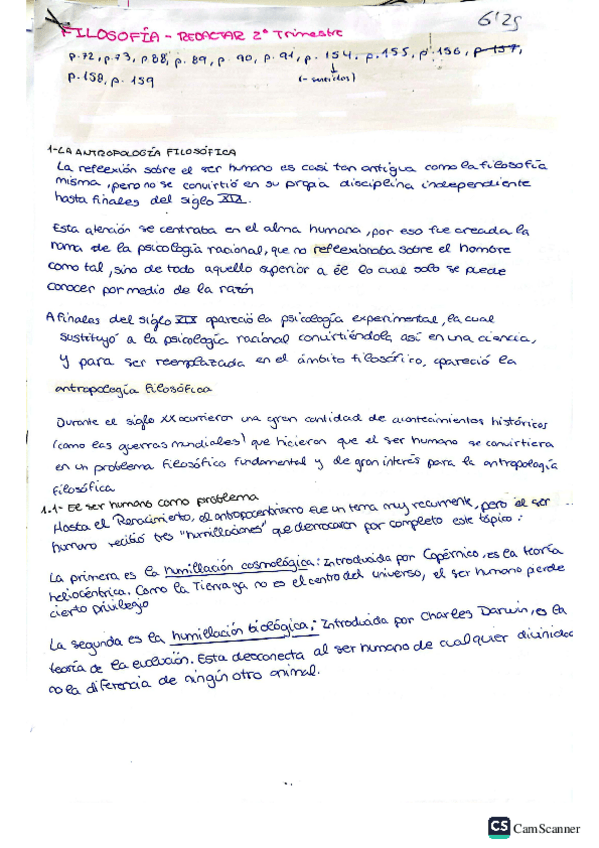 6'25
FILOSOFÍA - REDACTAR 2º Trimestre
p.72, p.73, p.88, p. 89, p. 90, p. 91, p. 154, p. 155, p. 156, p 157,
p. 158, p. 159
(- sentidos)
1-LA ANTROPOLOGÍA FILOSÓFICA
La reflexión sobre el ser humano es casi tan antigua como la filosofía
misma, pero no se convirtió en su propia disciplina independiente
hasta finales del siglo XIX.
Esta atención se centraba en el alma humana, por eso fue creada la
rama de la psicología racional, que no reflexionaba sobre el hombre
como tal, sino de todo aquello superior a él lo cual solo se puede
conocer por medio de la razón
A finales del siglo XIX apareció la psicología experimental, la cual
sustituyó a la psicología racional convirtiéndola así en una ciencia,
y para ser reemplazada en el ámbito filosófico, apareció la
antropología filosófica
Durante el siglo XX ocurrieron una gran cantidad de acontecimientos históricos
(como las guerras mundiales) que hicieron que el ser humano se convirtiera
en un problema filosófico fundamental y de gran interés para la antropología
filosófica
1.1- El ser humano como problema
Hasta el Renacimiento, el antropocentrismo fue un tema muy recurrente, pero el ser
humano recibió tres "humillaciones" que derrocaron por completo este tópico:
La primera es la humillación cosmológica: Introducida por Copérnico, es la teoría
heliocéntrica. Como la Tierra ya no es el centro del universo, el ser humano pierde
cierto privilegio
La segunda es la humillación biológica: Introducida por Charles Darwin, es la
teoría de la evolución. Esta desconecta al ser humano de cualquier divinidad
no la diferencia de ningún otro animal.
CS CamScanner